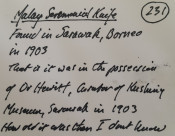 Malay Ceremonial Knife (231)
Found in Sarawak, Borneo
in 1903
That is it was in the possession
of Dr Hewitt, Curator of Kuching
Museum, Sarawak in 1903
How old it was then I dont know